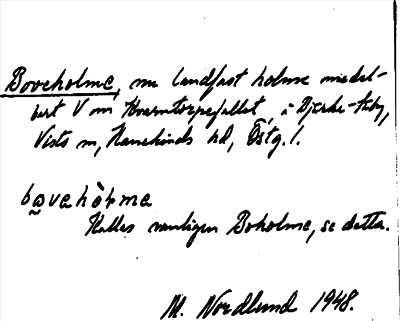 Boveholme, nu landfast holme medel-
bart V om Kvarntorpefallet, i Bjerka-Säby,
Vists sn, Hanekinds hd, Östg. l.
bɷvehòɫme
Kallas vanligen Boholme, se detta.
M. Nordlund 1948.